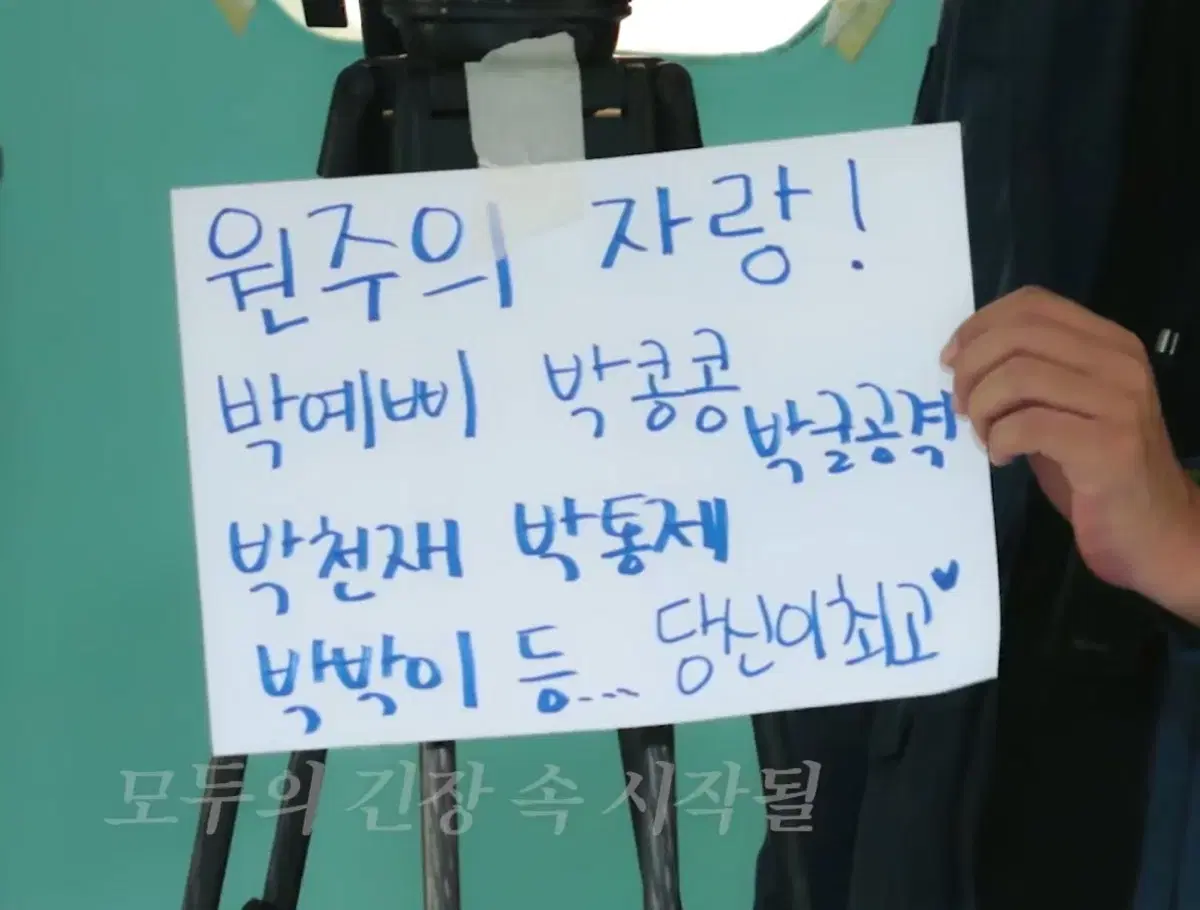 원주의 자랑!
박예삐 박콩콩 박굴공격
박천재 박통제
박박이 등... 당신이최고♥
모두의 긴장 속 시작될